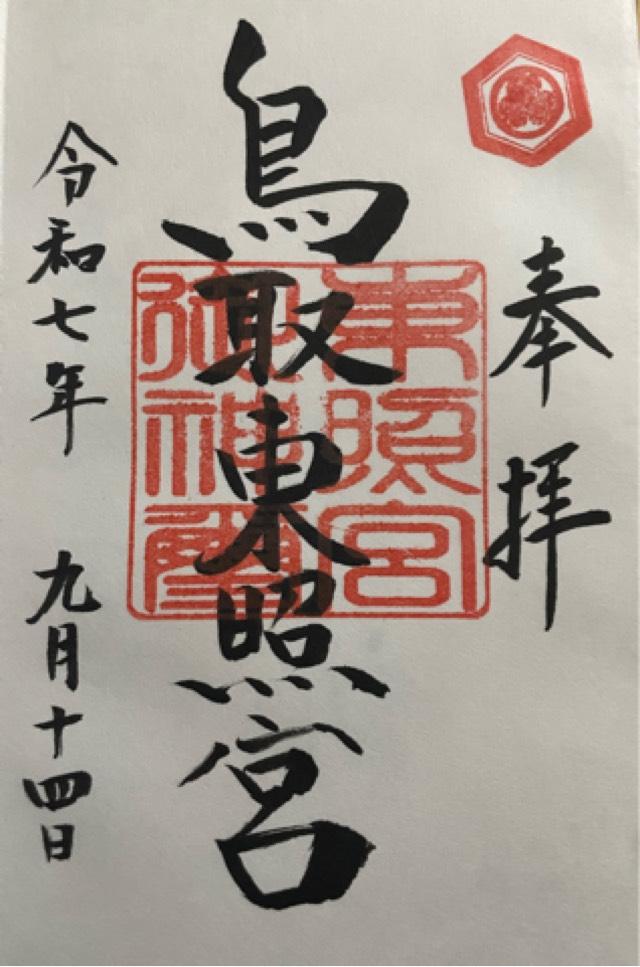 奉拝
鳥取東照宮
東照宮
御神璽
令和七年 九月十四日